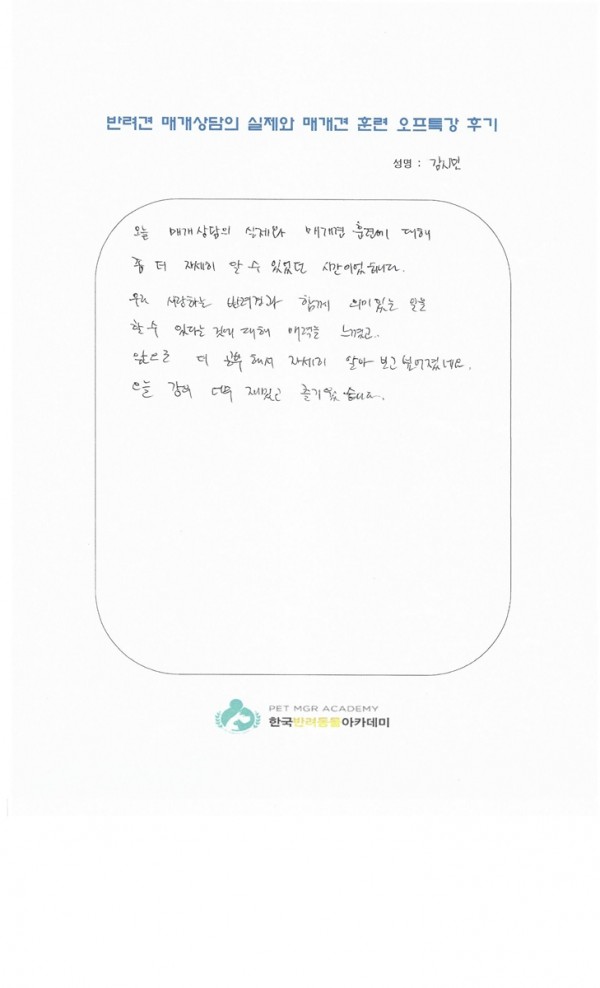 반려견 매개상담의 실제와 매개견 훈련 오프특강 후기
성명 : 김시민
오늘 매개상담의 실제와 매개견 훈련에 대해
좀 더 자세히 알 수 있었던 시간이었습니다.
우리 사랑하는 반려견과 함께 의미있는 일을
할 수 있다는 것에 대해 매력을 느꼈고..
앞으로 더 공부해서 자세히 알아 보고 싶어졌네요.
오늘 강의 너무 재밌고 즐거웠습니다.
PET MGR ACADEMY
한국반려동물아카데미